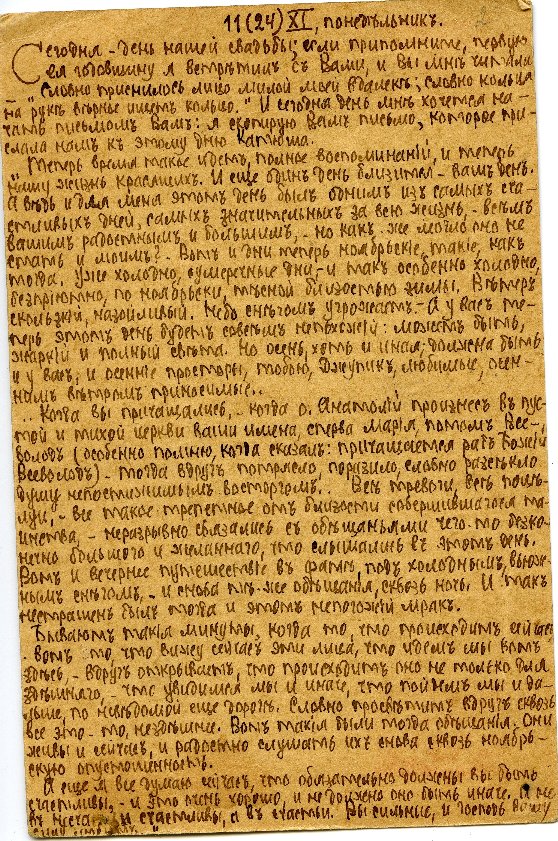 11 (24) XI, понедѣльникъ.
Сегодня - день нашей свадьбы; если припомните, первую
ея годовщину я встрѣтилъ съ Вами, и Вы мнѣ читали
- "Словно приснилось лицо милой моей вдалекѣ; словно кольца
на рукѣ вѣрные ищетъ кольцо." И сегодня день мнѣ хочется на-
чать письмомъ Вамъ: я скопирую Вамъ письмо, которое при-
слала намъ къ этому дню Катюша.
"Теперь время такое идетъ, полное воспоминаній, и теперь
нашу жизнь красящихъ. И еще одинъ день близится - вашъ день.
А вѣдь и для меня этотъ день былъ однимъ изъ самыхъ сча-
стливыхъ дней, самыхъ значительныхъ за всю жизнь, - всѣмъ
вашимъ радостнымъ и большимъ, - но какъ же могло оно не
стать и моимъ? - Вотъ и дни теперь ноябрьскіе, такіе, какъ
тогда. Уже холодно, сумеречные дни, - и такъ особенно холодно,
безпріютно, по ноябрьски, тѣсной близостью зимы. Вѣтеръ
скользкій, назойливый. Небо снѣгомъ угрожаетъ. - А у васъ те-
перь этотъ день будетъ совсѣмъ непохожій: можетъ быть,
жаркій и полный свѣта. Но осень, хоть и иная, должна быть
и у васъ, и осенніе просторы, тобою, Джупикъ, любимые, осен-
нимъ вѣтромъ приносимые..
.. Когда вы причащались, - когда о. Анатолій произнесъ въ пус-
той и тихой церкви ваши имена, сперва Марія, потомъ Все-
володъ (особенно помню, когда сказалъ: причащается рабъ Божій
Всеволодъ) - тогда вдругъ потрясло, поразило, словно разсѣкло
душу непостижимымъ восторгомъ.. Всѣ тревоги, весь
- все такое трепетное отъ близости совершившагося та-
инства, - неразрывно связались съ обѣщаньями чего-то безко-
нечно большого и желаннаго, что слышались въ этотъ день.
Вотъ и вечернее путешествіе въ подъ холоднымъ, вьюж-
нымъ снѣгомъ, - и снова тѣ-же обѣщанія, сквозь ночь. И такъ
нестрашенъ былъ тогда и этотъ непогожій мракъ.
Бываютъ такія минуты, когда то, что происходитъ сейчасъ
- вотъ то, что вижу сейчасъ эти лица, что идемъ мы вотъ
здѣсь, - вдругъ открываетъ, что происходитъ оно не только для
здѣшняго, - что увидимся мы и иначе, что пойдемъ мы и да-
льше, по невѣдомой еще дорогѣ. Словно просвѣтитъ вдругъ сквозь
все это - то, нездѣшнее. Вотъ такія были тогда обѣщанія. Они
живы и сейчасъ, и радостно слушать ихъ снова сквозь ноябрь-
скую опустошенность.
А еще я все думаю сейчасъ, что обязательно должны вы быть
счастливы, - и это очень хорошо, и не должно оно быть иначе. А не
въ несча и счастливы, а въ счастьи. Вы сильные, и Господь